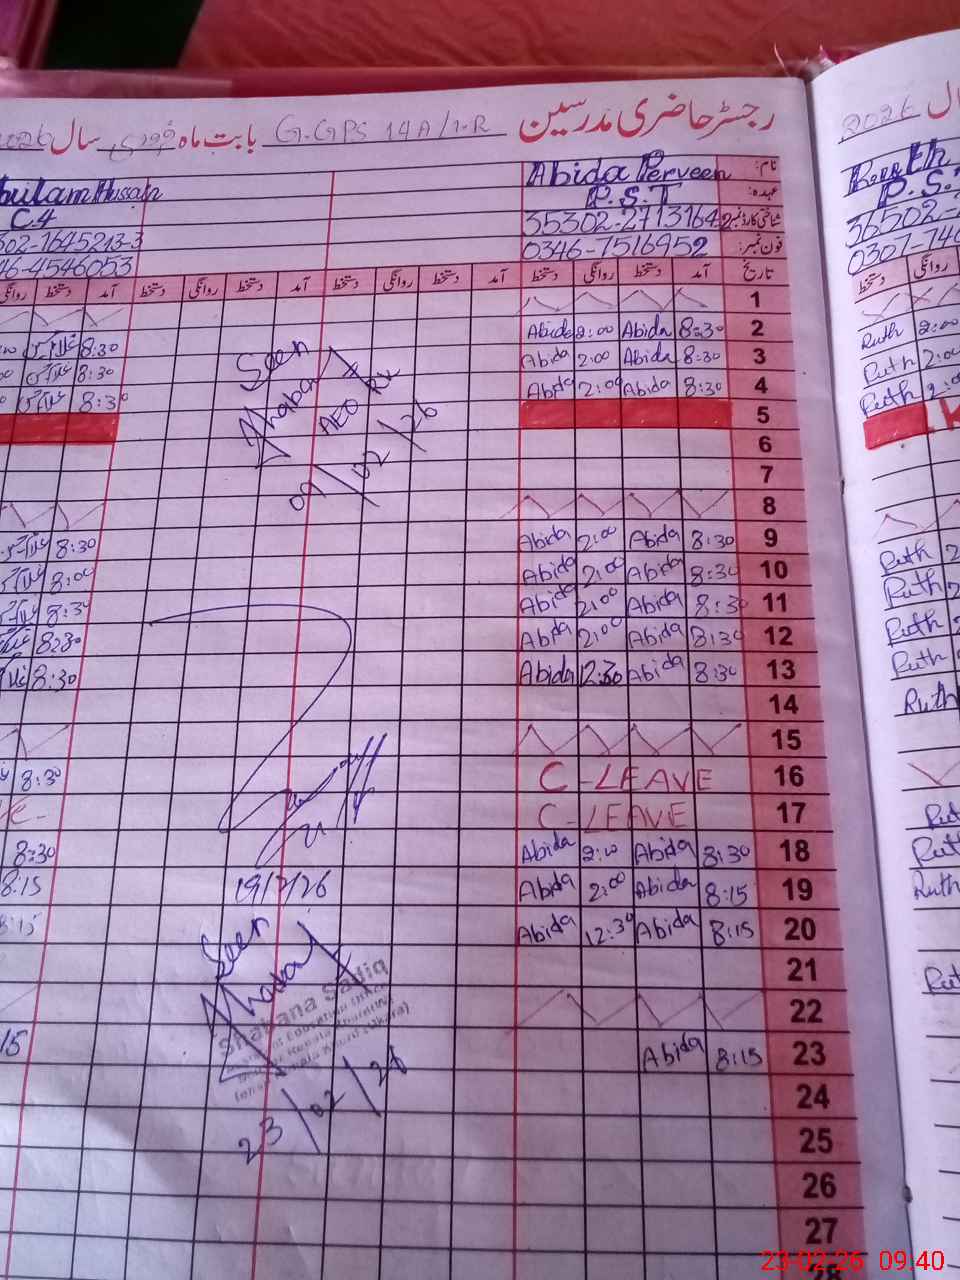 رجسٹر حاضری مدرسین G.GPS 14A/1.R بابت ماہ فروری سال 2026
نام: Abida Perveen
عہدہ: P.S.T
شناختی کارڈ نمبر: 35302-2713164-2
فون نمبر: 0346-7516952
Hussain
C.4
302-1645213-3
46-4546053
تاریخ آمد دستخط روانگی دستخط آمد دستخط روانگی دستخط آمد دستخط روانگی دستخط آمد دستخط روانگی
1
2 8:30 Abida 2:00 Abida 8:30
3 8:30 Abida 2:00 Abida 8:30
4 8:30 Abida 2:00 Abida 8:30
5
6
7
8
9 8:30 Abida 2:00 Abida 8:30
10 8:30 Abida 2:00 Abida 8:00
11 8:30 Abida 2:00 Abida 8:30
12 8:30 Abida 2:00 Abida 8:30
13 8:30 Abida 12:30 Abida 8:30
14
15
16 C-LEAVE 8:30
17 C-LEAVE
18 8:30 Abida 2:00 Abida 8:30
19 8:15 Abida 2:00 Abida 8:15
20 8:15 Abida 12:30 Abida 8:15
21
22
23 8:15 Abida
24
25
26
27
Seen
AEO
09/02/26
19/2/26
Seen
Shabana Sadiq
23/02/26
سال 2026
Ruth
P.S.T
36502-
Ruth 2:00
Ruth 2:00
Ruth
Ruth
Ruth
Ruth
Ruth
Ruth
Ruth
23-02-26 09.40